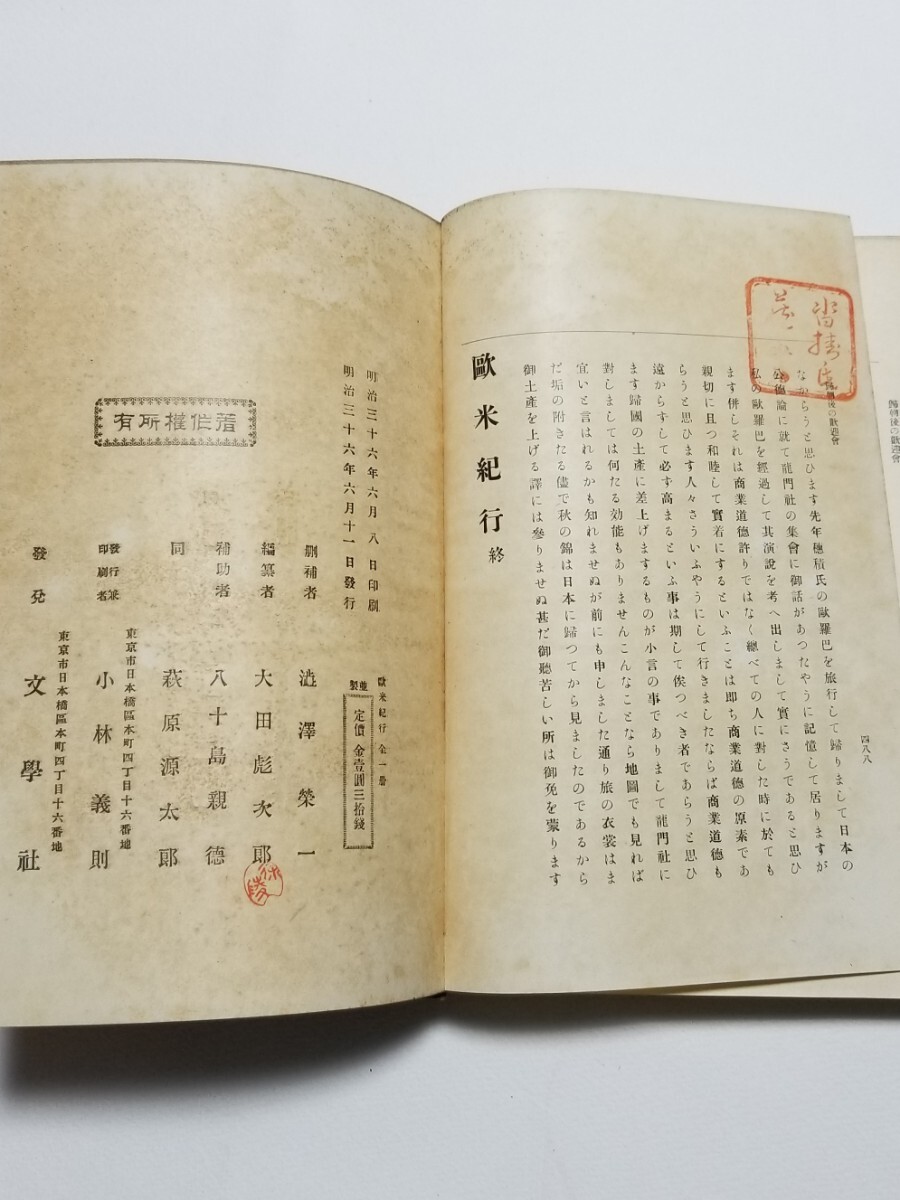 歸朝後の歡迎會
四八八
なからうと思ひます先年穗積氏の歐羅巴を旅行して歸りまして日本の
公德論に就て龍門社の集會に御話があつたやうに記憶して居りますが
私の歐羅巴を經過して其演說を考へ出しまして實にさうであると思ひ
ます併しそれは商業道德許りではなく總べての人に對した時に於ても
親切に且つ和睦して實着にするといふことは即ち商業道德の原素であ
らうと思ひます人々さういふやうにして行きましたならば商業道德も
遠からずして必ず高まるといふ事は期して俟つべき者であらうと思ひ
ます歸國の土產に差上げまするものが小言の事でありまして龍門社に
對しましては何たる効能もありませんこんなことなら地圖でも見れば
宜いと言はれるかも知れませぬが前にも申しました通り旅の衣裳はま
だ垢の附きたる儘で秋の錦は日本に歸つてから見ましたのであるから
御土產を上げる譯には參りませぬ甚だ御聽苦しい所は御免を蒙ります
歐米紀行 終
明治三十六年六月八日印刷
明治三十六年六月十一日發行
歐米紀行 全一册
並製 定價 金壹圓三拾錢
著作權所有
刪補者 澁澤榮一
編纂者 大田彪次郎
補助者 八十島親德
同 萩原源太郎
東京市日本橋區本町四丁目十六番地
發行兼印刷者 小林義則
東京市日本橋區本町四丁目十六番地
發兌 文學社